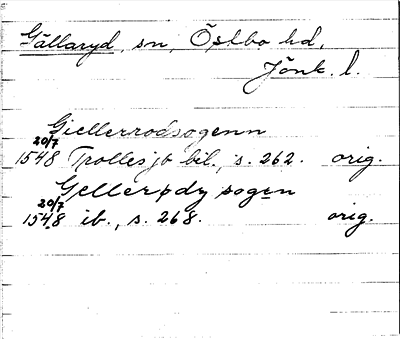 Gällaryd, sn, Östbo hd,
Jönk. l.
Giellerrodsogenn
20/7 1548 Trolles jb bil., s. 262. orig.
Gellerødy sogen
20/7 1548 ib., s. 268. orig.